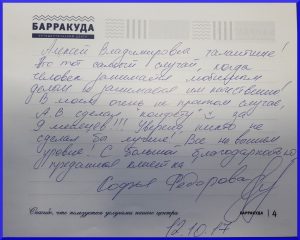 БАРРАКУДА
Алексей Владимирович талантище!
Это тот самый случай, когда
человек занимается любимым
делом и занимается им качественно!
В моём очень не простом случае,
А.В. сделал "конфету" за
9 месяцев!!! Уверена, никто не
сделал бы лучше! Все на высшем
уровне! С большой благодарностью,
преданная клиентка!
Софья Федорова
Спасибо, что пользуетесь услугами нашего центра
БАРРАКУДА | 4
12.10.17